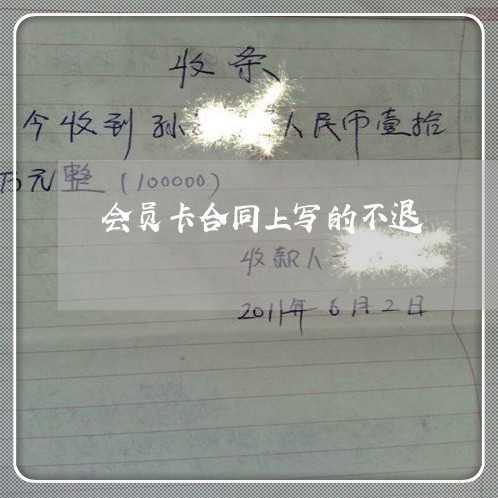 收条
今收到孙 人民币壹拾
万元整(100000)
会员卡合同上写的不退
收款人
2011年6月2日